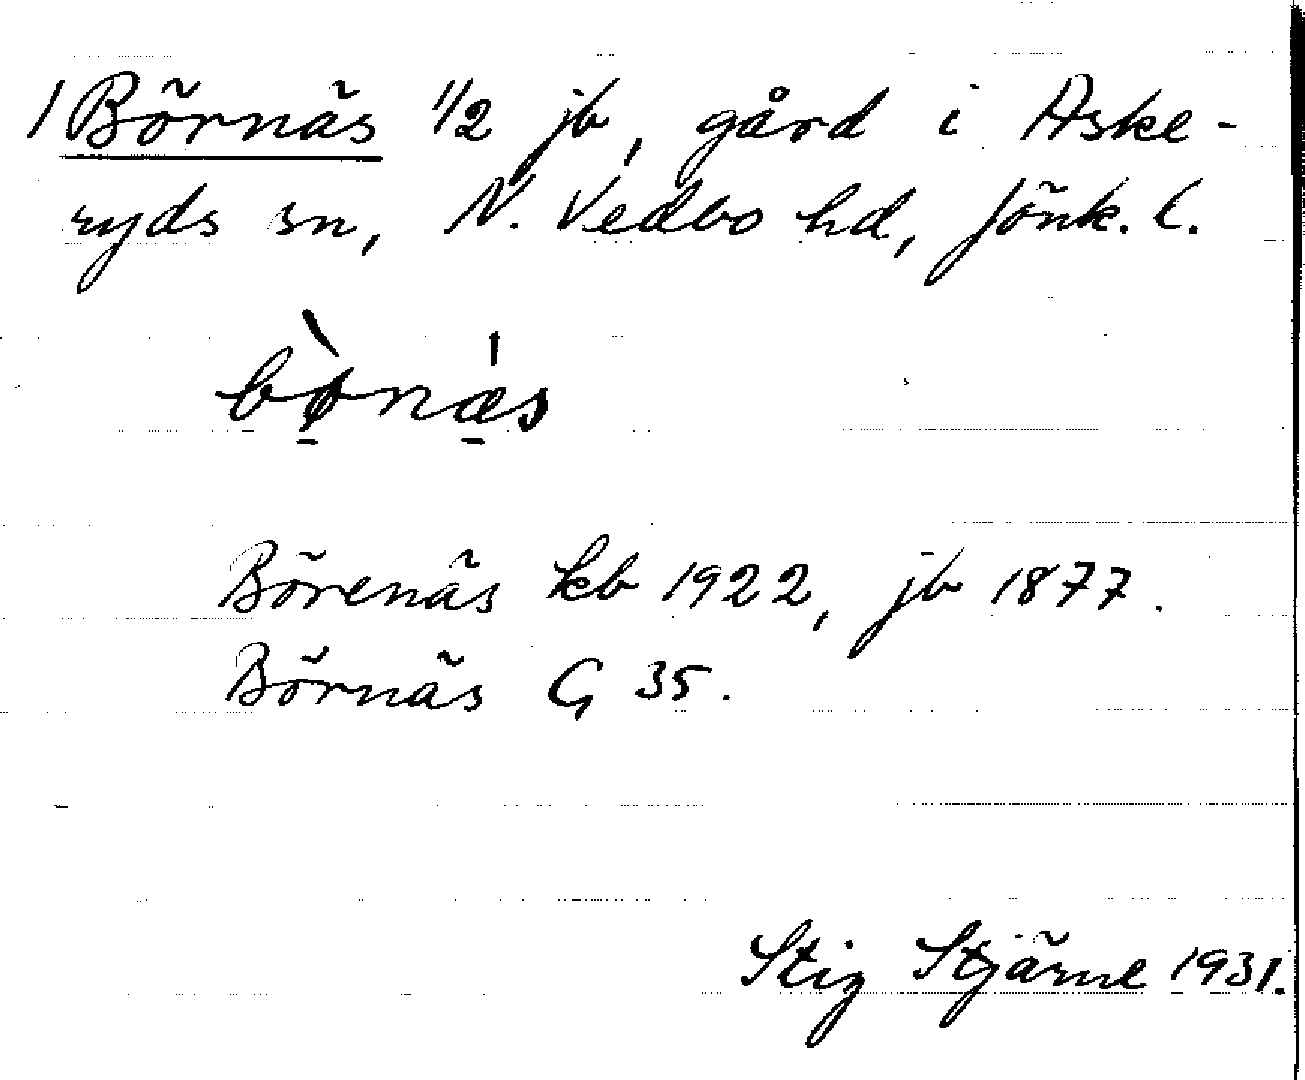 /Börnäs 1/2 jb, gård i Aske-
ryds sn, N. Vedbo hd, Jönk. l.
bø̱̀nǽ̱s
Börenäs kb 1922, jb 1877.
Börnäs G 35.
Stig Stjärne 1931.